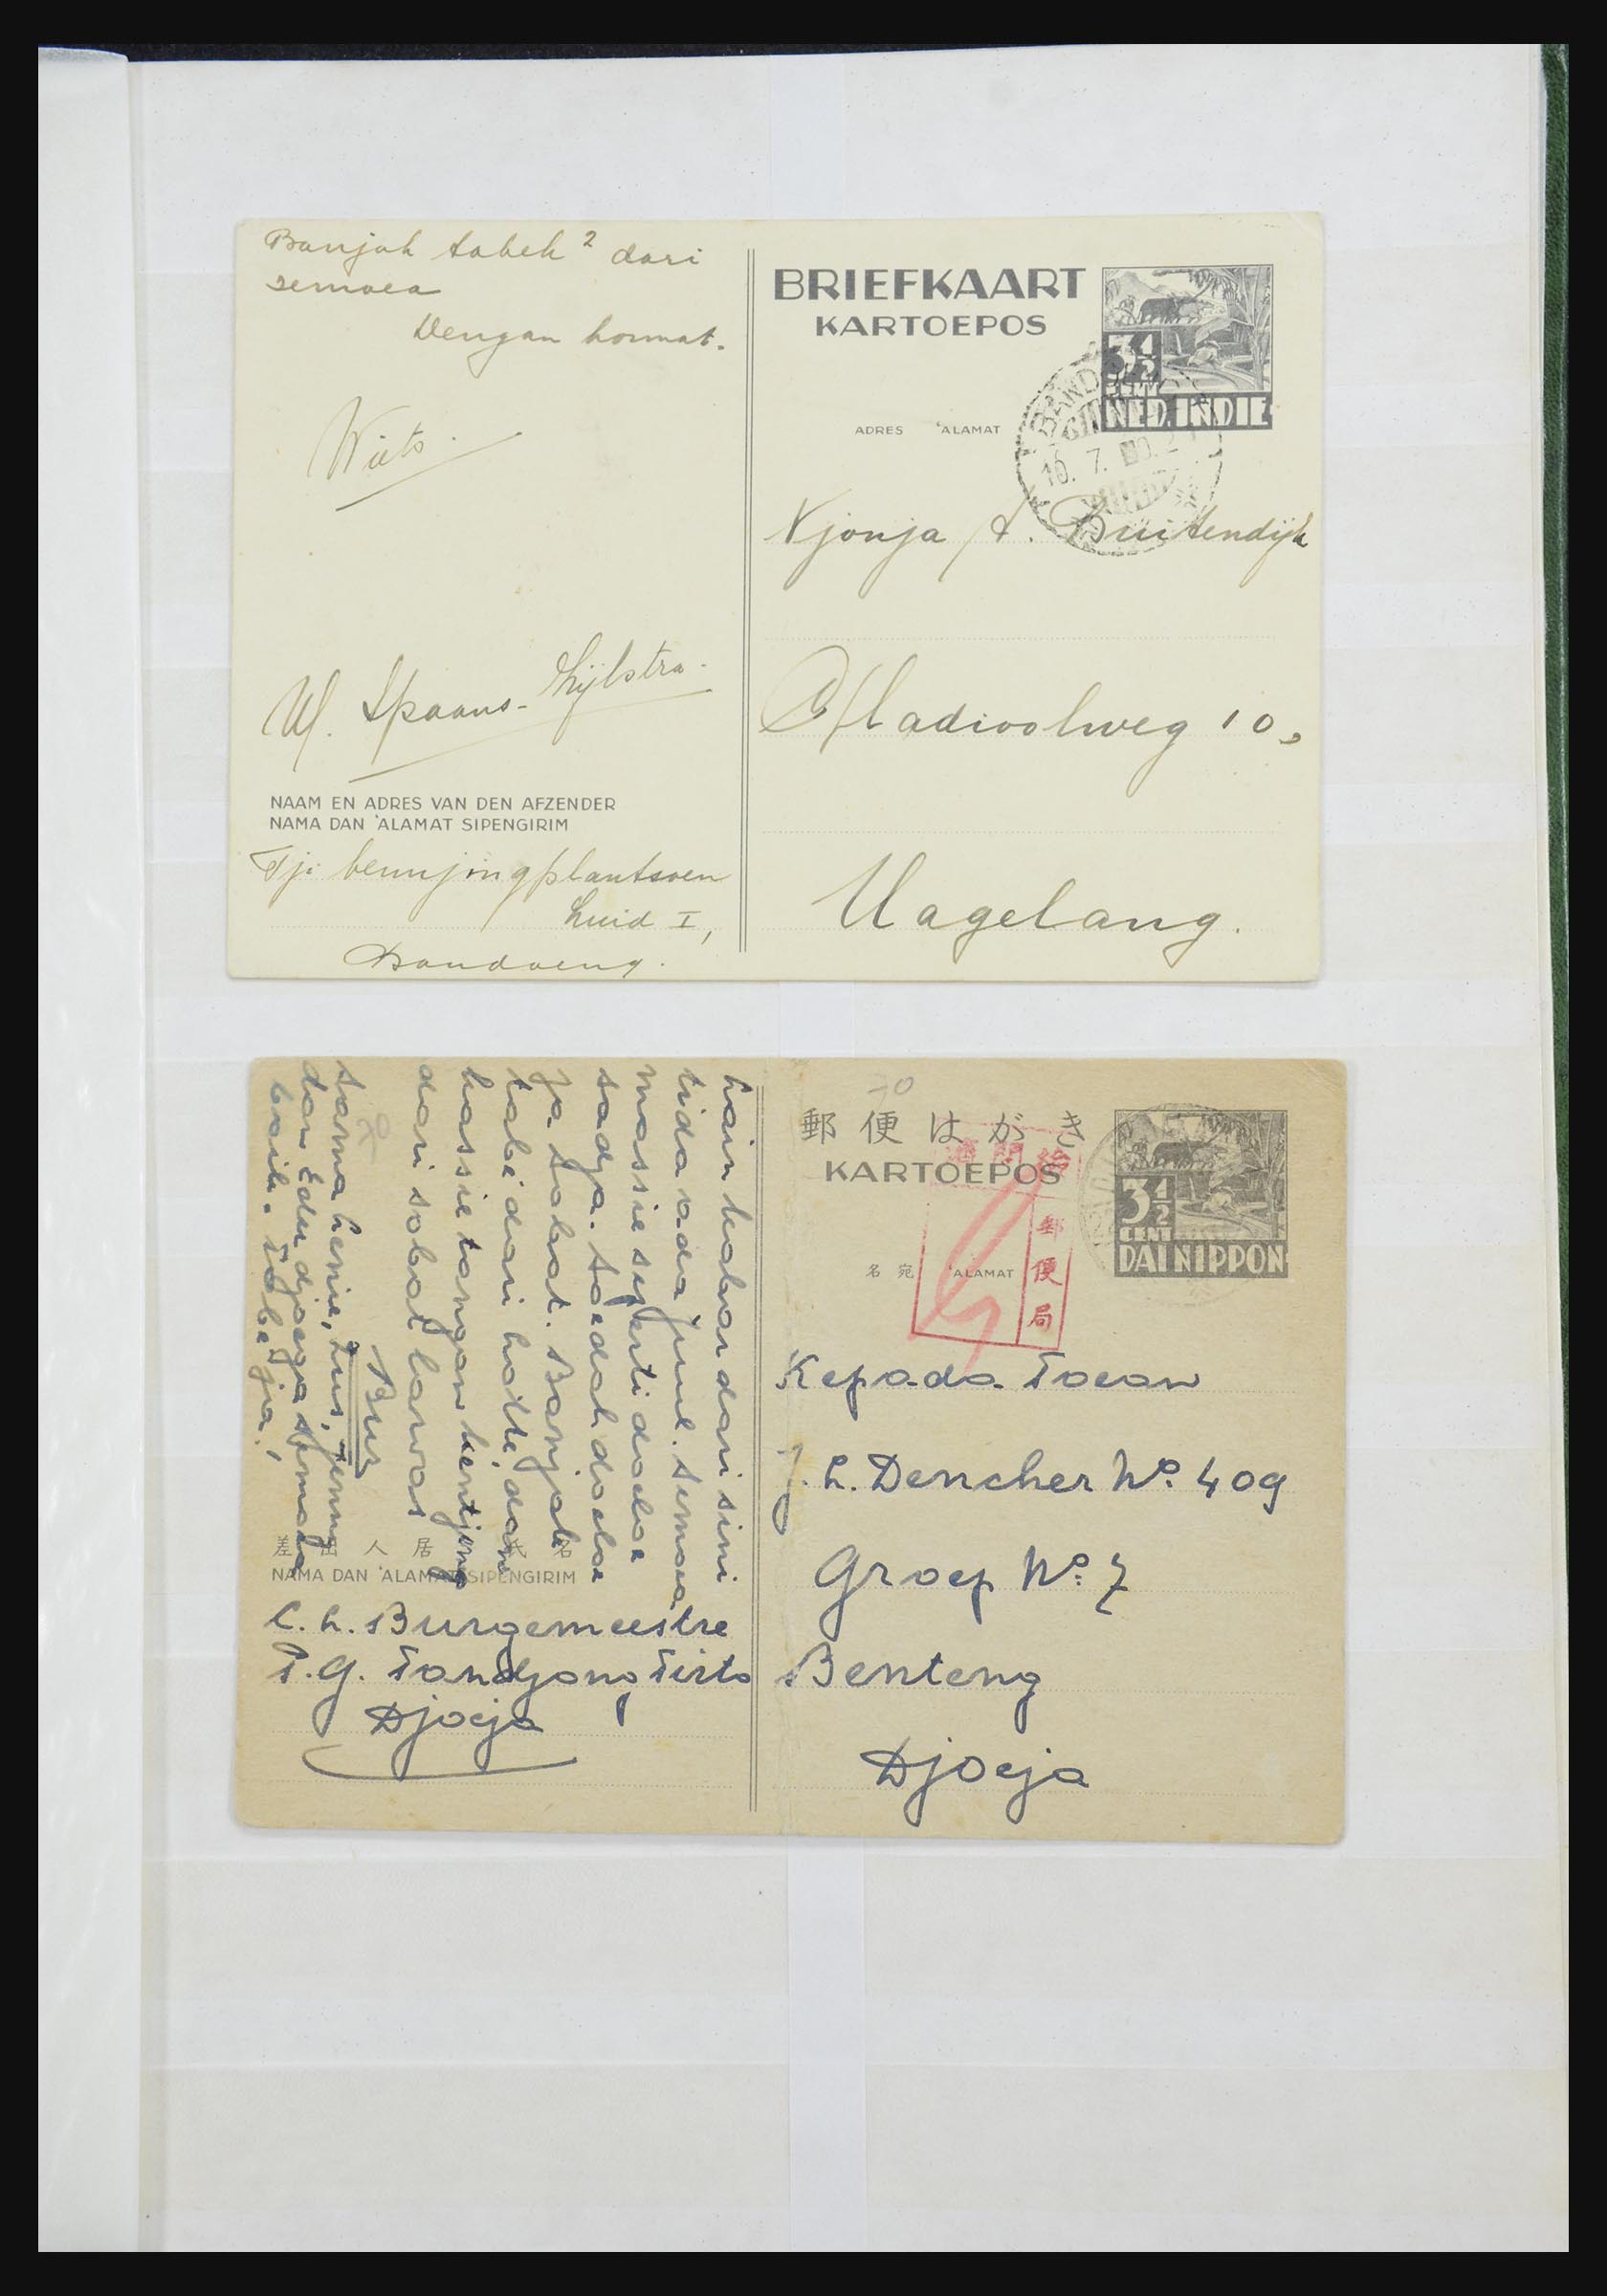 Banjak tabeh² dari
semoea
Dengan hormat.
Wiets.
M. Spaans-Zijlstra.
NAAM EN ADRES VAN DEN AFZENDER
NAMA DAN 'ALAMAT SIPENGIRIM
Tji benunjingplantsoen
Zuid I,
Bandoeng.
BRIEFKAART
KARTOEPOS
3½
CENT
NED. INDIE
ADRES 'ALAMAT
10. 7.
Njonja A. Buitendijk
Gladioolweg 10,
Magelang.
Lain kabar dari sini
tida ada Juul. Semoea
massie seperti doeloe
sadja. Soedah doeloe
ja Sobat. Banjak
tabe dari hatie, dan
kassie tangan kentjeng
dari sobat lawas
Bur
Sama Henie, Zus, Jenny
dan Edu djoega semoea
baik. Tabe ja!
差出人居 氏名
NAMA DAN 'ALAMAT SIPENGIRIM
C. L. Burgemeestre
P. G. Tandjong Tirto
Djocja
70
郵便はがき
KARTOEPOS
3½
CENT
DAI NIPPON
郵便局
名宛 'ALAMAT
Kepada Toean
J. L. Dencher No. 409
Groep No. 7
Benteng
Djocja